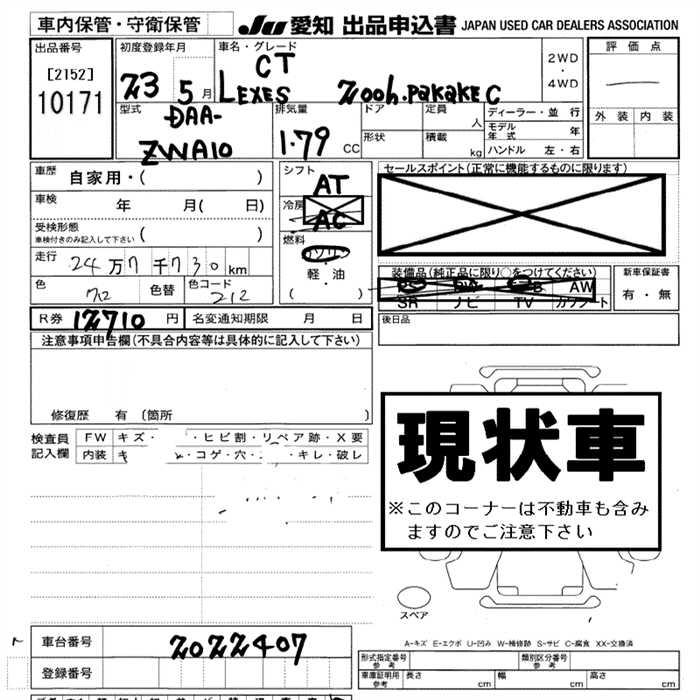 車内保管・守衛保管
JU 愛知 出品申込書 JAPAN USED CAR DEALERS ASSOCIATION
出品番号
[2152]
10171
初度登録年月
23 5月
車名・グレード
CT
LEXES 200h.pakake C
2WD
・
4WD
評価点
外装 内装
型式
DAA-
ZWA10
排気量
1.79 CC
ドア
定員
人
形状
積載
kg
ディーラー・並行
モデル年式 年
ハンドル 左・右
車歴 自家用・( )
車検 年 月( 日)
受検形態
車検付きのみ記入して下さい ( )
走行 24万7千730km
色 クロ 色替 色コード 212
シフト
AT
冷房
AC
燃料
ガソリン
軽・油
( )
セールスポイント(正常に機能するものに限ります)
装備品(純正品に限り○をつけてください)
AW
SR ナビ TV カワシート
新車保証書
有・無
R券 12710 円 名変通知期限 月 日
後日品
注意事項申告欄(不具合内容等は具体的に記入して下さい)
修復歴 有(箇所 )
検査員
記入欄
FW キズ・ ・ヒビ割・リペア跡・X要
内装 キ ・コゲ・穴・ ・キレ・破レ
現状車
※このコーナーは不動車も含み
ますのでご注意下さい
スペア
A-キズ E-エクボ U-凹み W-補修跡 S-サビ C-腐食 XX-交換済
車台番号 2022407
登録番号
形式指定番号
参考
類別区分番号
参考
車庫証明用
参考
長さ cm 幅 cm 高さ cm